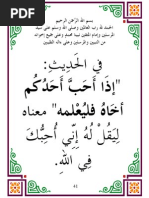 بسم الله الرحمن الرحيم
الحمد لله رب العالمين وصلى الله وسلم على سيد
المرسلين وإمام المتقين نبينا محمد وعلى جميع إخوانه
من النبيين والمرسلين وعلى ءاله الطيبين
في الحَدِيثِ:
"إذا أَحَبَّ أَحَدُكُم
أخَاهُ فليُعْلمه" معناه
لِيَقُلْ لَهُ إنِّي أُحِبُّكَ
فِي اللهِ.